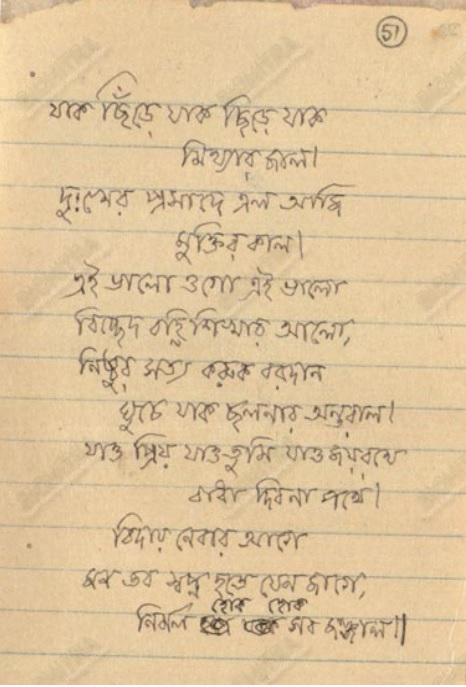 51
যাক ছিঁড়ে যাক ছিঁড়ে যাক
মিথ্যার জাল।
দুঃখের প্রসাদে এল আজি
মুক্তির কাল।
এই ভালো ওগো এই ভালো
বিচ্ছেদ বহ্নিশিখার আলো,
নিষ্ঠুর সত্য করুক বরদান
ঘুচে যাক ছলনার অন্তরাল।
যাও প্রিয় যাও তুমি যাও জয়রথে
বাধা দিব না পথে।
বিদায় নেবার আগে
মন তব স্বপ্ন হতে যেন জাগে,
নির্মল হোক হোক সব জঞ্জাল॥